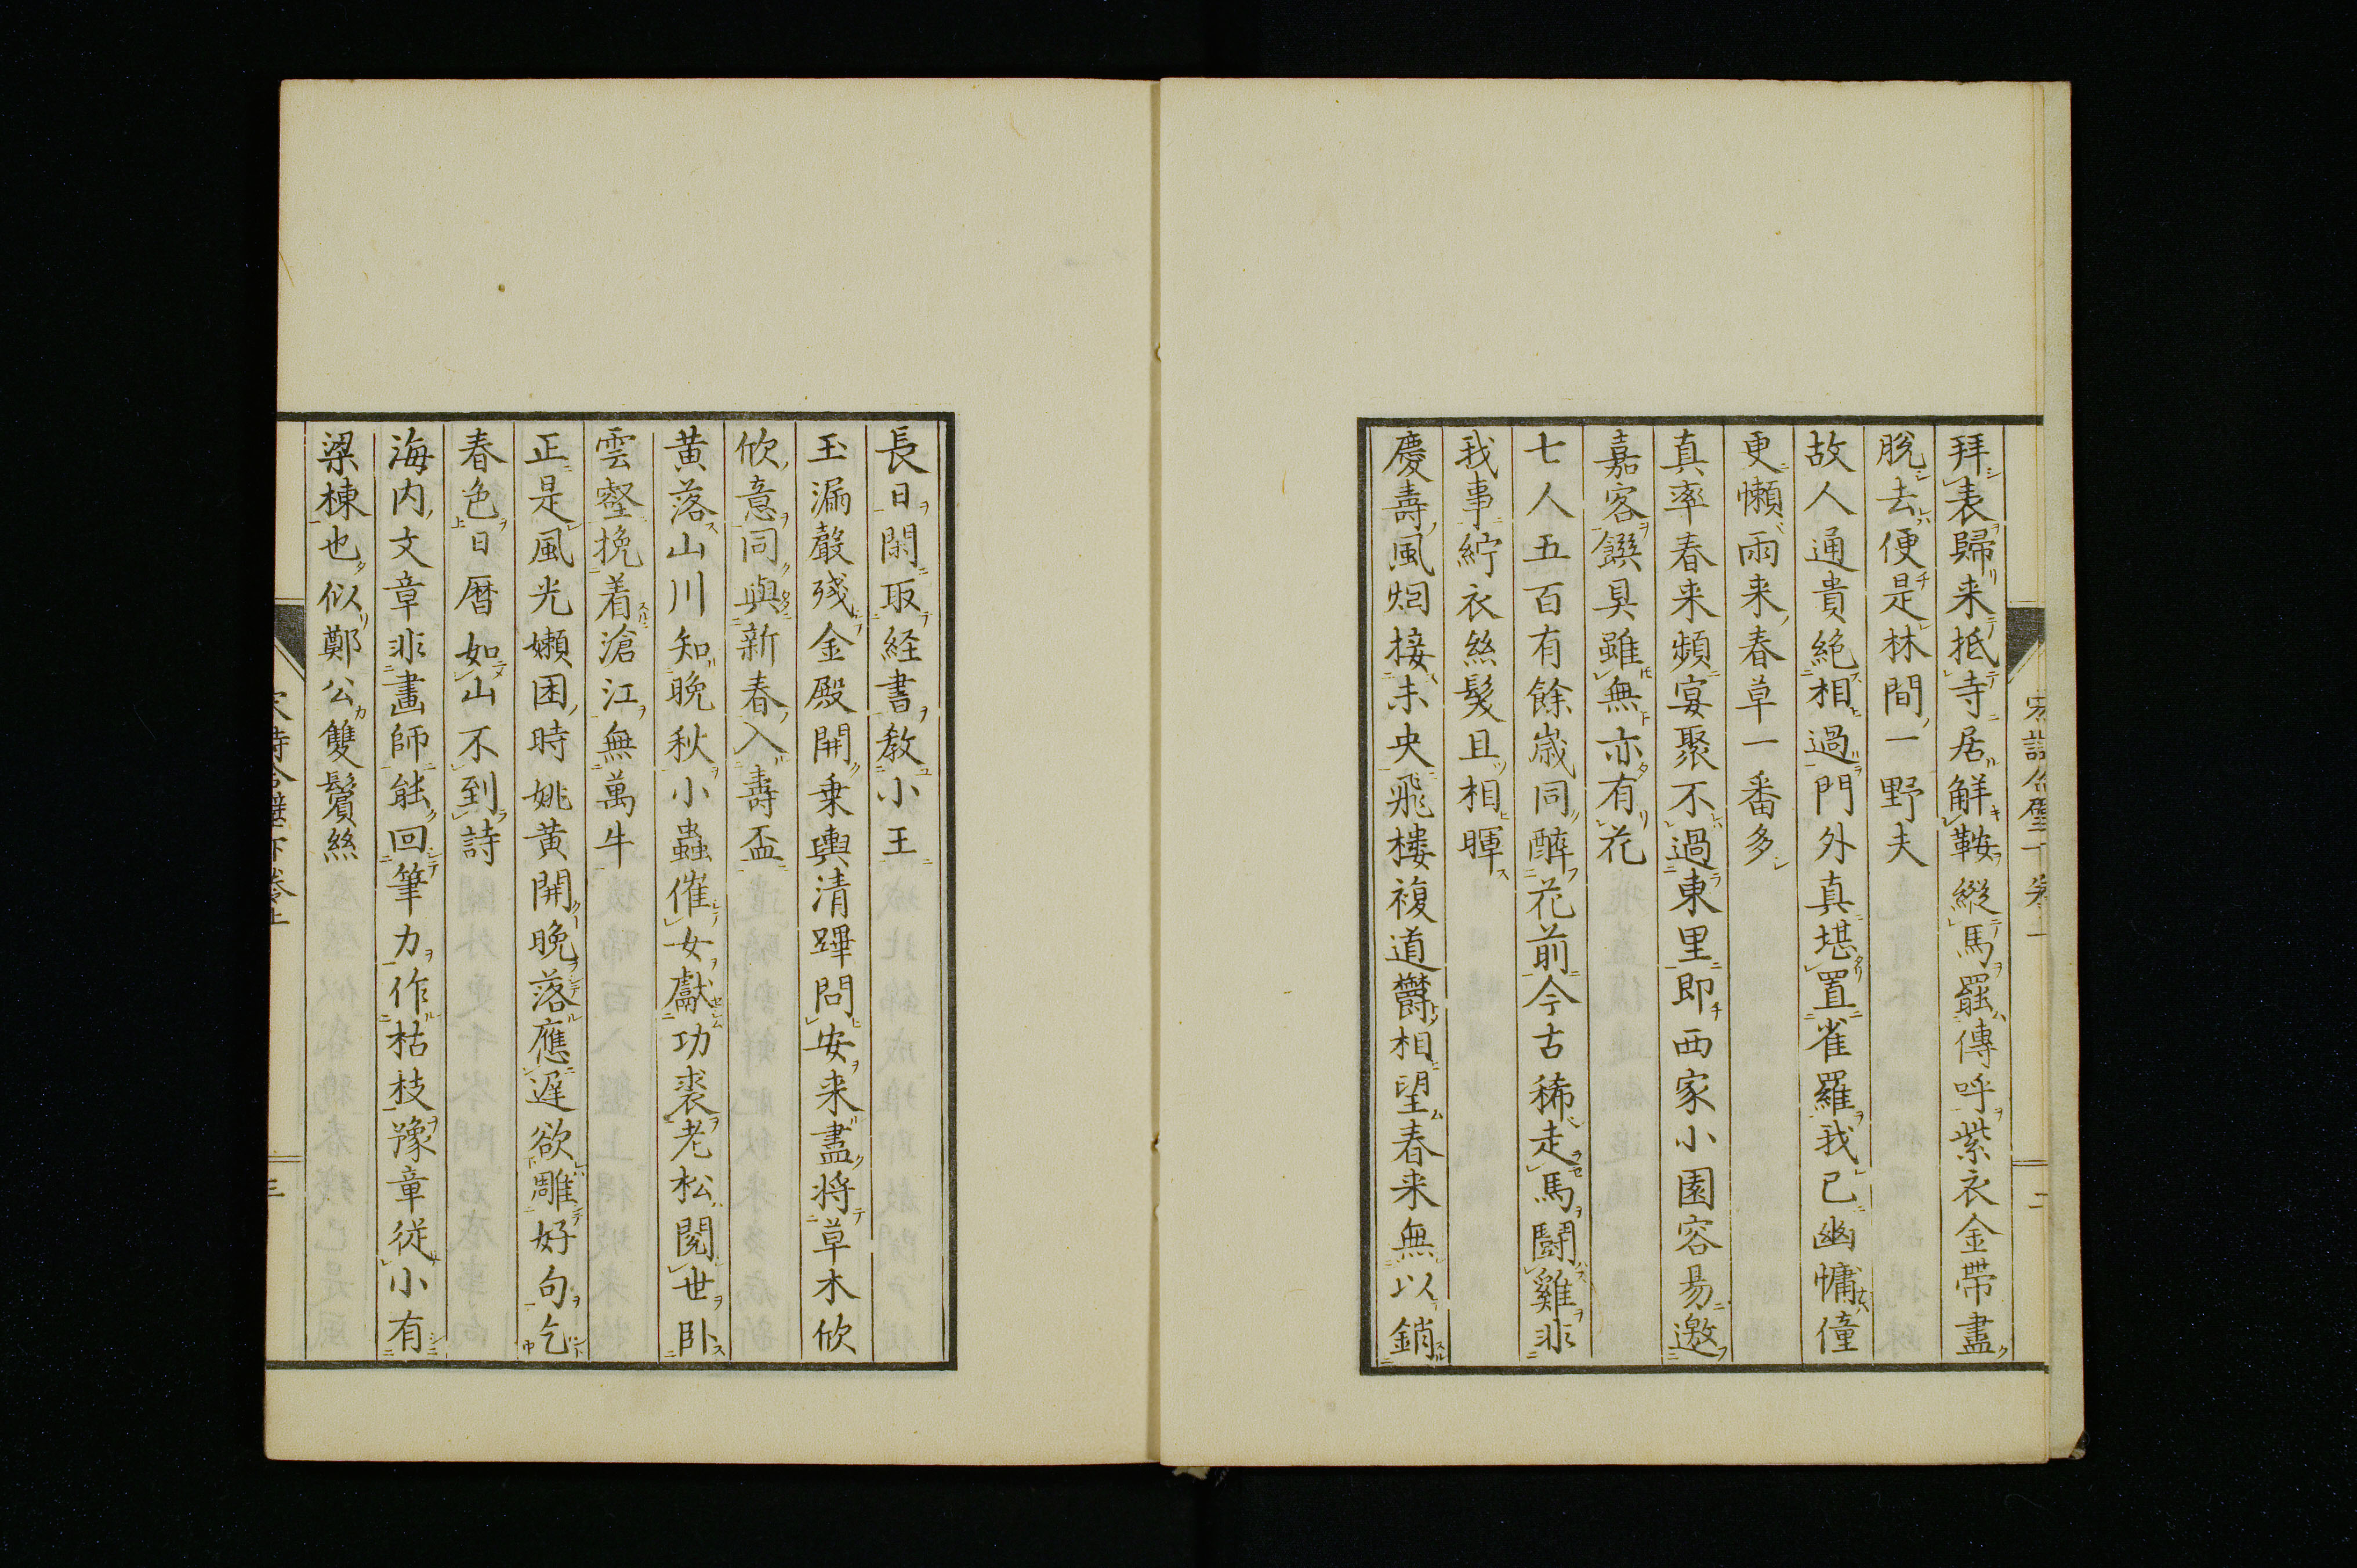 拜表歸来抵寺居解鞍縦馬罷傳呼紫衣金帶盡
脱去便是林間一野夫
故人通貴絶相過門外真堪置雀羅我已幽慵僮
更懶雨来春草一番多
真率春来頻宴聚不過東里即西家小園容易邀
嘉客饌具雖無亦有花
七人五百有餘歳同醉花前今古稀走馬鬪雞非
我事紵衣絲髪且相暉
慶壽風烟接未央飛樓複道欝相望春来無以銷
長日閑取経書教小王
玉漏聲残金殿開乗輿清蹕問安来盡将草木欣
欣意同與新春入壽盃
黄落山川知晩秋小蟲催女獻功裘老松閲世卧
雲壑挽着滄江無萬牛
正是風光嬾困時姚黄開晩落應遅欲雕好句乞
春色日暦如山不到詩
海内文章非畫師能回筆力作枯枝豫章従小有
梁棟也似鄭公雙鬢絲
二
三